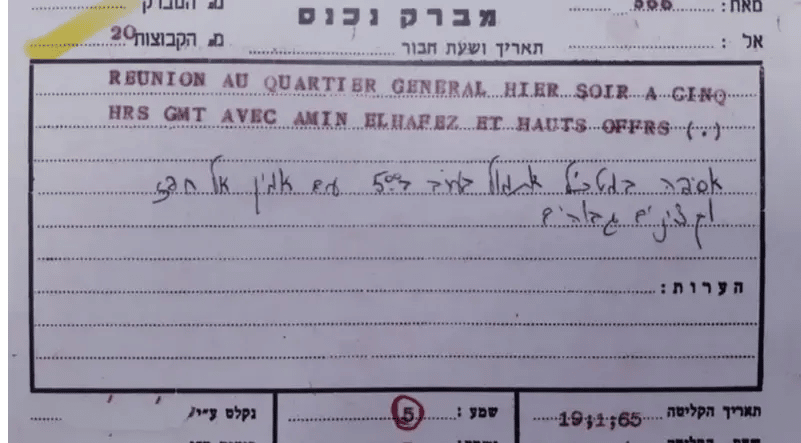 מס המברק מאת: 666
מברק נכנס
מס הקבוצות 20 תאריך ושעת חבור אל :
REUNION AU QUARTIER GENERAL HIER SOIR A CINQ
HRS GMT AVEC AMIN ELHAFEZ ET HAUTS OFFRS (.)
אסיפה במטכ"ל אתמול בערב ב500 עם אמין אל חפז
וקצינים גבוהים
הערות :
תאריך הקליטה 19;1;65 שמע : 5 נקלט ע"י/